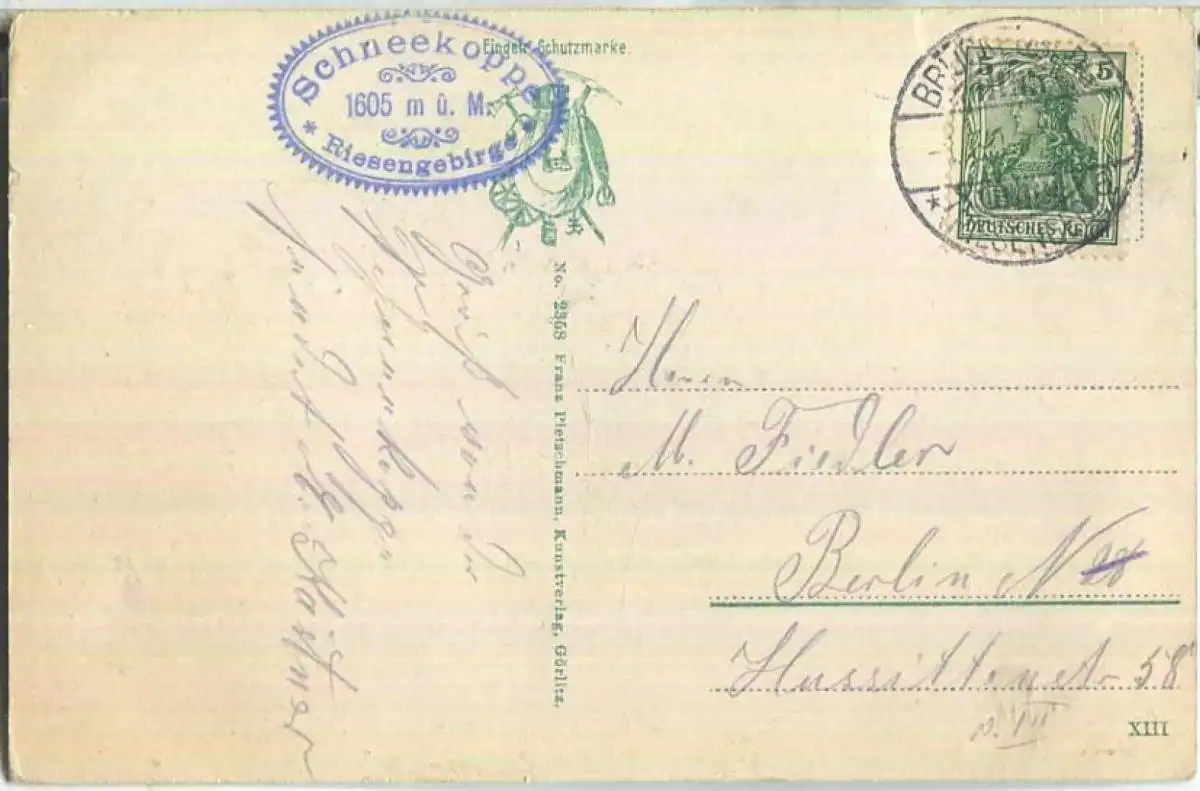 Schneekoppe
1605 m ü. M.
* Riesengebirge *
Eingetr. Schutzmarke.
5 5
DEUTSCHES REICH
Gruß von der
Schneekoppe
No. 2358 Franz Pietschmann, Kunstverlag, Görlitz.
Herrn
M. Fiedler
Berlin N 28
Hussitenstr 58
XIII